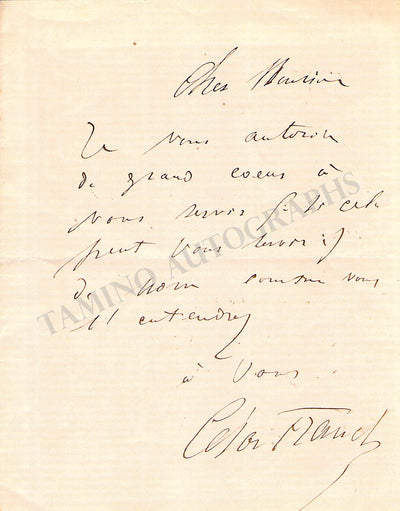 Cher Monsieur
Je vous autorise
de grand coeur à
vous servir si cela
peut vous servir
de nom comme vous
l'entendrez
à Vous
César Franck
TAMINO AUTOGRAPHS